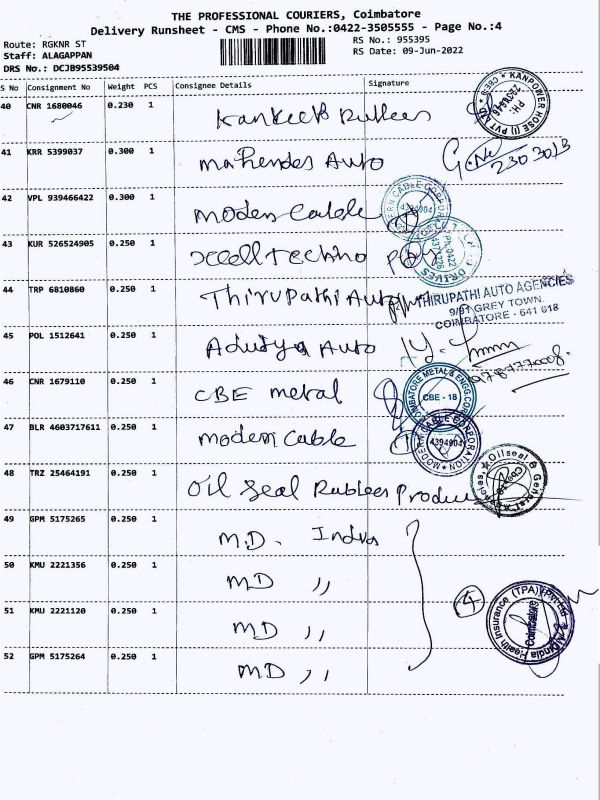 THE PROFESSIONAL COURIERS, Coimbatore
Delivery Runsheet - CMS - Phone No.:0422-3505555 - Page No.:4
Route: RGKNR ST
RS No.: 955395
Staff: ALAGAPPAN
RS Date: 09-Jun-2022
DRS No.: DCJB95539504
S No Consignment No Weight PCS Consignee Details Signature
40 CNR 1680046 0.230 1 Rubbees
KANPOWER HOSE (I) PVT
41 KRR 5399037 0.300 1 Mahendes Auto
2303013
42 VPL 939466422 0.300 1 Modern Cable
MODERN CABLE CORPORATION
4394904
43 KUR 526524905 0.250 1 Xcell Techno
DRIVES
44 TRP 6810860 0.250 1 Thirupathi Auto
THIRUPATHI AUTO AGENCIES
9/91 GREY TOWN,
COIMBATORE - 641 018
45 POL 1512641 0.250 1 Aduty a Auto
46 CNR 1679110 0.250 1 CBE metal
COIMBATORE METAL & ENGG.CORP
CBE - 18
47 BLR 4603717611 0.250 1 modern Cable
MODERN CABLE CORPORATION
4394904
48 TRZ 25464191 0.250 1 Oil Seal Rubbees Produc
Oilseal & General Agencies
49 GPM 5175265 0.250 1 M.D. Indus
50 KMU 2221356 0.250 1 MD ,,
51 KMU 2221120 0.250 1 MD ,,
4
India Health Insurance (TPA) Pvt Ltd
Coimbatore
52 GPM 5175264 0.250 1 MD ,,